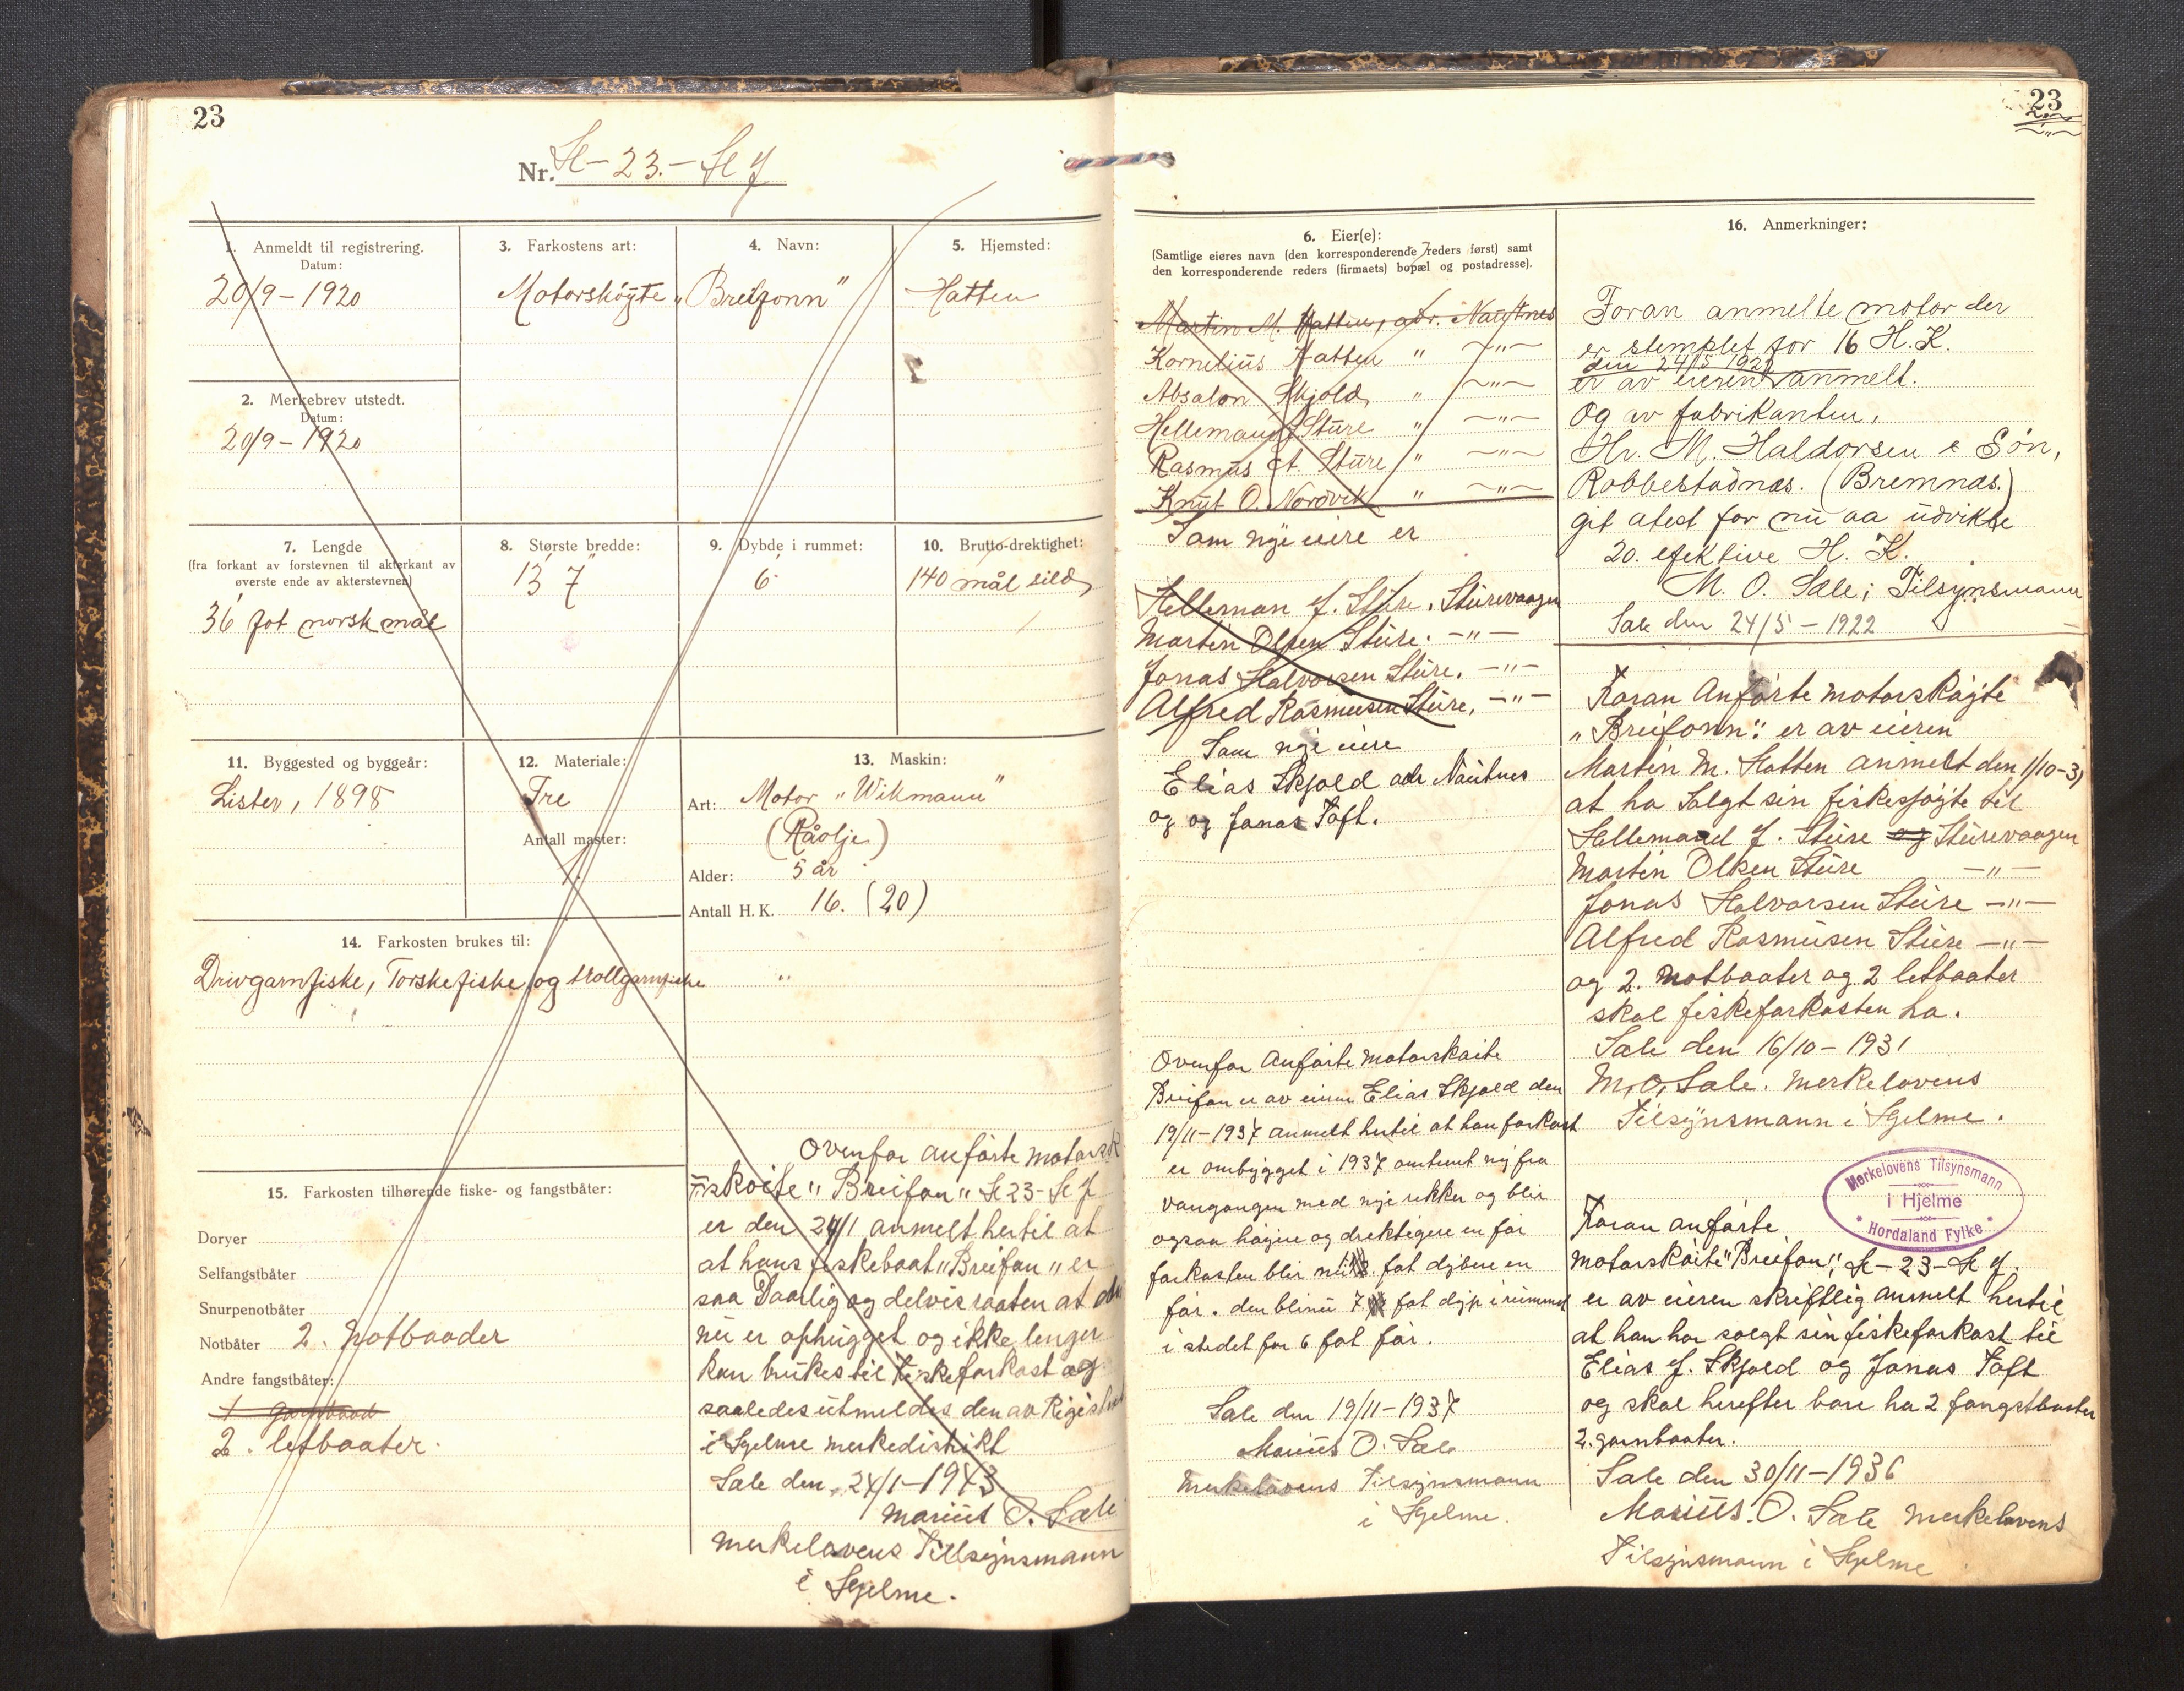 23
Nr. H-23.-Hj
1. Anmeldt til registrering.
Datum:
20/9-1920
2. Merkebrev utstedt.
Datum:
20/9-1920
3. Farkostens art:
Motorskøyte
4. Navn:
"Breifonn"
5. Hjemsted:
Hatten
7. Lengde
(fra forkant av forstevnen til akterkant av
øverste ende av akterstevnen)
36' fot norsk mål
8. Største bredde:
13' 7"
9. Dybde i rummet:
6'
10. Brutto-drektighet:
140 mål sild
11. Byggested og byggeår:
Lister, 1898
12. Materiale:
Tre
Antall master:
13. Maskin:
Art: Motor "Wikmann"
(Råolje)
Alder: 5 år
Antall H.K. 16. (20)
14. Farkosten brukes til:
Drivgarnfiske, Torskefiske og trollgarnfiske
15. Farkosten tilhørende fiske- og fangstbåter:
Doryer
Selfangstbåter
Snurpenotbåter
Notbåter 2. Notbaader
Andre fangstbåter:
1 garnbaad
2. letbaater.
Ovenfor anførte motorsk
Fiskøite "Breifon" H 23-Hj
er den 24/1 anmelt hertil at
at hans fiskebaat "Breifon" er
saa Daarlig og delvis raaten at den
nu er ophugget og ikke lenger
kan brukes til Fiskefarkost og
saaledes utmeldes den av Register
i Hjelme merkedistrikt
Sæle den 24/1-1943
Marius O. Sæle
Merkelovens Tillsynsmann
i Hjelme.
23
6. Eier(e):
(Samtlige eieres navn (den korresponderende reders først) samt
den korresponderende reders (firmaets) bopæl og postadresse).
Martin M. Hatten, adr. Naustnes
Kornelius Hatten " -"-
Absalon Skjold " -"-
Hellemann J Sture " -"-
Rasmus A. Sture " -"-
Knut O. Nordvik " -"-
Som nye eiere er
Helleman J. Sture. Sturevaagen
Martin Olsen Sture. -"-
Jonas Halvorsen Sture. -"-
Alfred Rasmusen Sture, -"-
Som nye eiere
Elias Skjold adr Nautnes
og og Jonas Toft.
Ovenfor Anførte Motorskøite
Breifon er av eieren Elias Skjold den
19/11-1937 anmelt hertil at han farkost
er ombygget i 1937 omtrent ny fra
vangangen med nye rekker og blir
ogsaa høgere og drektigere en før
farkosten blir nu fot dybere en
før. den blir nu 7 fot dyp i rummet
i stedet for 6 fot før.
Sæle den 19/11-1937
Marius O. Sæle
Merkelovens Tilsynsmann
i Hjelme.
16. Anmerkninger:
Foran anmelte motor der
er stemplet for 16 H.K.
den 24/5 1922
er av eieren anmelt.
Og av fabrikanten,
Hr. M. Haldorsen & Søn,
Robbestadnæs. (Bremnæs.)
git atest for nu aa udvikle
20. efektive H.K.
M. O. Sæle; Tilsynsmann
Sæle den 24/5-1922
Foran Anførte motorskøyte
"Breifonn": er av eieren
Martin M. Hatten anmelt den 1/10-31
at ha solgt sin fiskeskøyte til
Hellemand J. Sture og Sturevaagen
Martin Olsen Sture -"-
Jonas Halvorsen Sture -"-
Alfred Rasmusen Sture -"-
og 2. Notbaater og 2 letbaater
skal fiskefarkosten ha.
Sæle den 16/10-1931
M, O, Sæle. Merkelovens
Tilsynsmann i Hjelme.
Merkelovens Tilsynsmann
i Hjelme
* Hordaland Fylke *
Foran anførte
motorskøite "Breifon", H-23-Hj.
er av eieren skriftlig anmelt hertil
at han har solgt sin fiskefarkost til
Elias J. Skjold og Jonas Toft
og skal herefter bare ha 2 fangstbaater
2. garnbaater.
Sæle den 30/11-1936
Marius. O. Sæle Merkelovens
Tilsynsmann i Hjelme